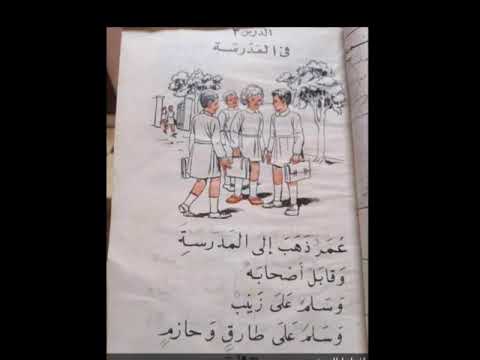 الدرس ٣
في المدرسة
عُمَر ذَهَبَ إلى المَدرَسةِ
وَقابَل أصْحابَه
وَسَلم عَلَى زَيْنَبْ
وَسَلمَ عَلَى طارِقٍ وَحازِمٍ